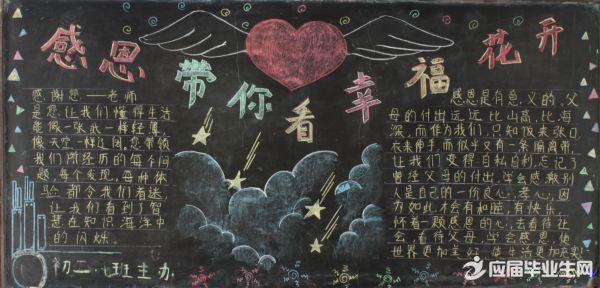 感恩带你看幸福花开
感谢您——老师
是您,让我们懂得生活
能像一张纸一样轻薄,
像天空一样辽阔,您带领
我们所经历的每个问
题,每个发现,每种体
验都令我们着迷
让我们看到了智
慧在知识海洋中
的闪烁。
初二.班主办
感恩是有意义的,父
母的付出远远比山高,比海
深,而作为我们,只知饭来张口,
衣来伸手,而似乎又有一条隔离带,
让我们变得自私自利,忘记了
曾经父母的付出,学会感激别
人是自己的一份良心,孝心,因
为如此才会有和睦,有快乐,
怀着一颗感恩的心,去看待社
会,看待父母,学会感恩,使
世界更加美
应届毕业生网